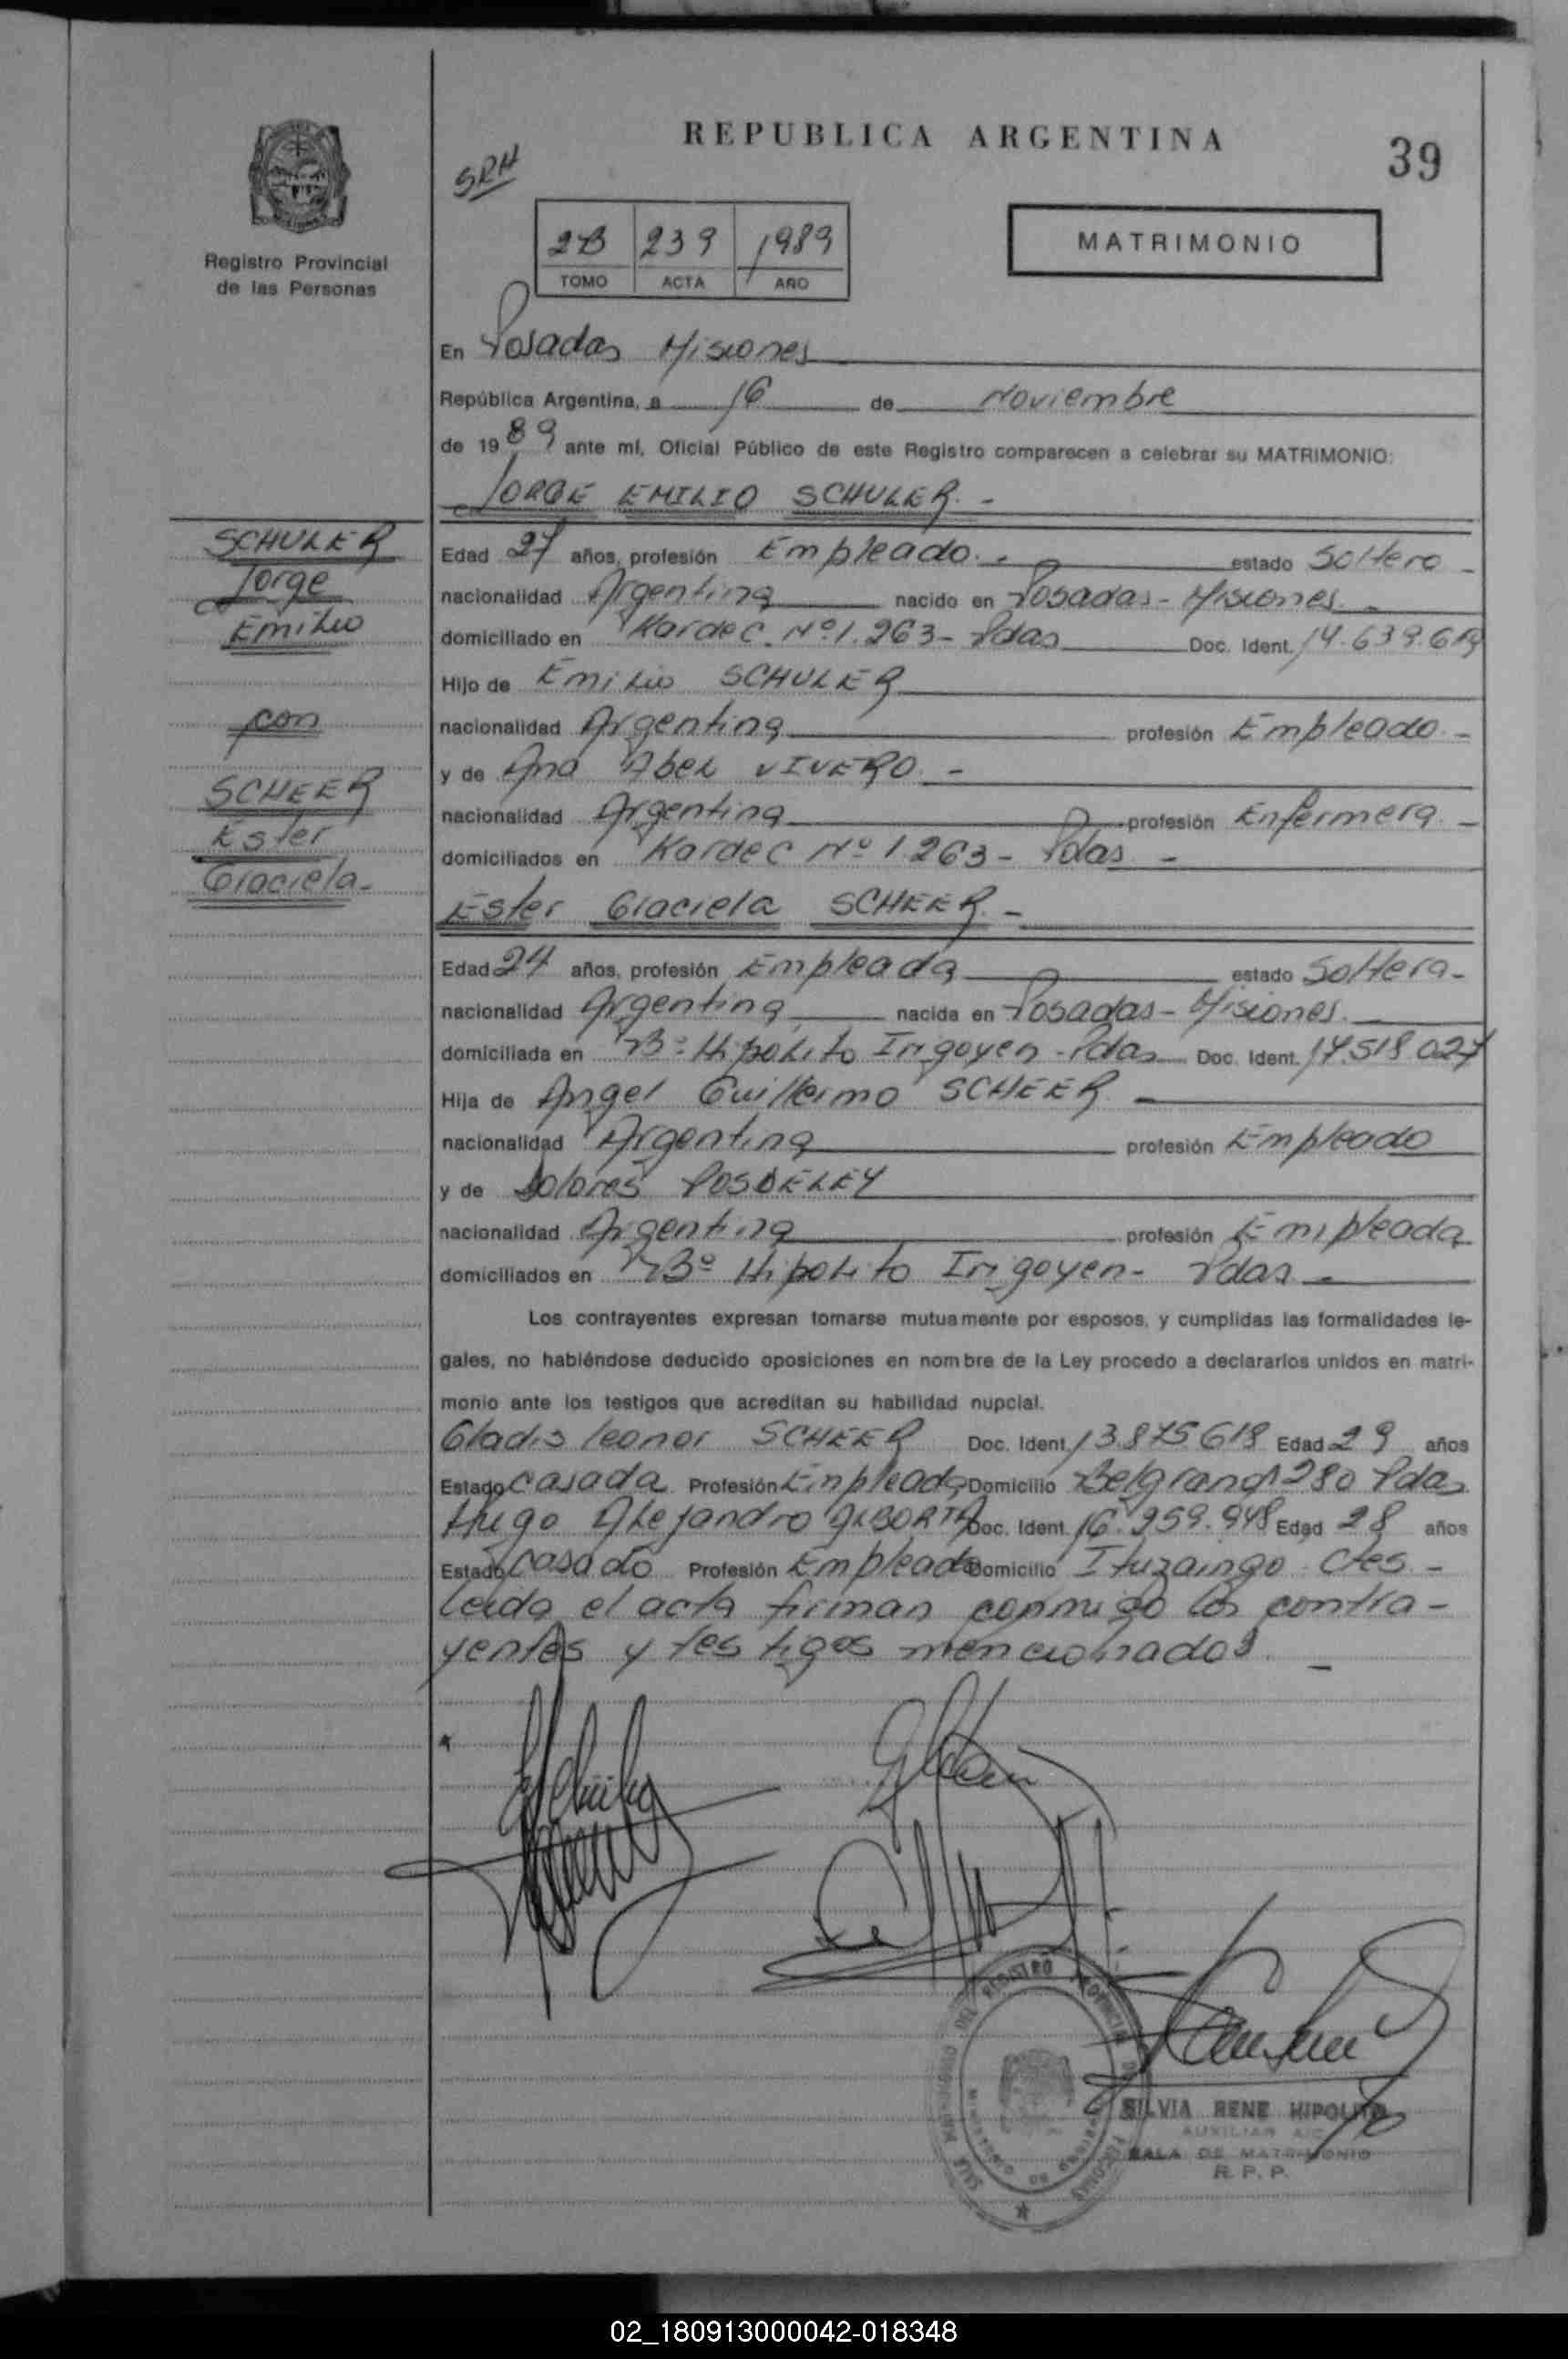 REPUBLICA ARGENTINA
39
SRH
2B 239 1989
TOMO ACTA AÑO
MATRIMONIO
Registro Provincial
de las Personas
En Posadas Misiones
República Argentina, a 16 de Noviembre
de 1989 ante mí, Oficial Público de este Registro comparecen a celebrar su MATRIMONIO:
JORGE EMILIO SCHULER. -
SCHULER
Jorge
Emilio
con
SCHEER
Ester
Graciela-
Edad 27 años, profesión Empleado. - estado Soltero -
nacionalidad Argentina nacido en Posadas - Misiones. -
domiciliado en Kardec Nº 1.263 - Pdas Doc. Ident. 14.639.619
Hijo de Emilio SCHULER
nacionalidad Argentina profesión Empleado. -
y de Ana Abel VIVERO. -
nacionalidad Argentina profesión Enfermera. -
domiciliados en Kardec Nº 1263 - Pdas -
Ester Graciela SCHEER. -
Edad 24 años, profesión Empleada estado Soltera -
nacionalidad Argentina nacida en Posadas - Misiones.
domiciliada en Bº Hipolito Irigoyen - Pdas Doc. Ident. 17.518.027
Hija de Angel Guillermo SCHEER. -
nacionalidad Argentina profesión Empleado
y de Dolores POSDELEY
nacionalidad Argentina profesión Empleada
domiciliados en Bº Hipolito Irigoyen - Pdas -
Los contrayentes expresan tomarse mutuamente por esposos, y cumplidas las formalidades le-
gales, no habiéndose deducido oposiciones en nombre de la Ley procedo a declararlos unidos en matri-
monio ante los testigos que acreditan su habilidad nupcial.
Gladis Leonor SCHEER Doc. Ident. 13875618 Edad 29 años
Estado Casada Profesión Empleada Domicilio Belgrano 1280 Pdas
Hugo Alejandro ALBORTA Doc. Ident. 16.959.948 Edad 28 años
Estado Casado Profesión Empleado Domicilio Ituzaingo Ctes -
leida el acta firman conmigo los contra-
yentes y testigos mencionados. -
SILVIA RENE HIPOLITO
AUXILIAR
SALA DE MATRIMONIO
R. P. P.
02_180913000042-018348